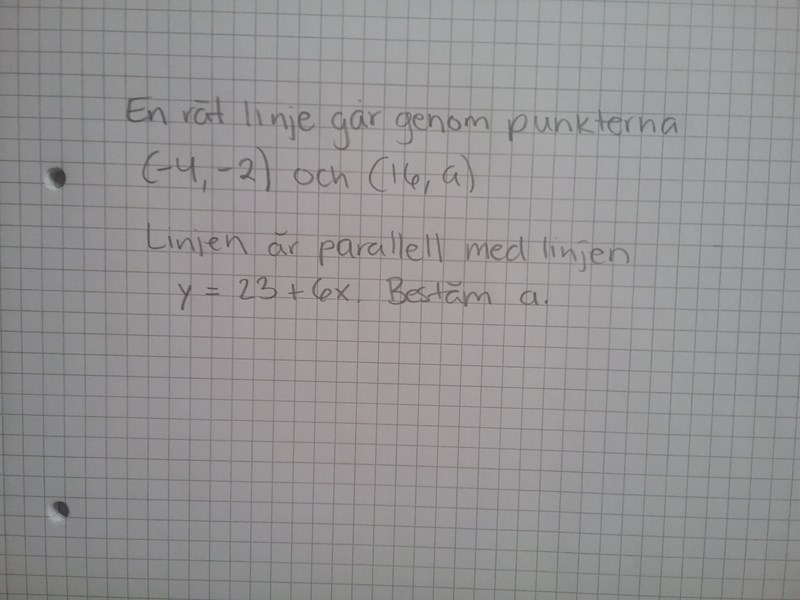 En rät linje går genom punkterna
(-4, -2) och (16, a)
Linjen är parallell med linjen
y = 23 + 6x. Bestäm a.